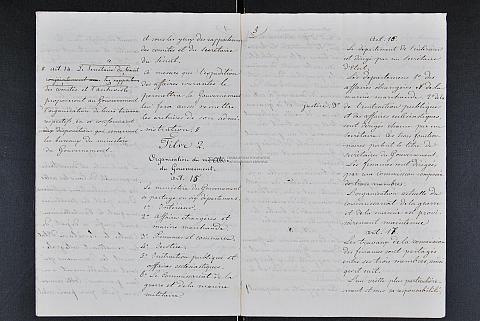 3
art. 14. Le Secrétaire du Sénat
les rapporteurs
des comités et l'archiviste
proposeront au Gouvernement
l'organisation de leurs bureaux
respectifs, en se conformant
aux dispositions qui concernent
les bureaux du ministère
du Gouvernement.
et sous les yeux des rapporteurs
des comités et du Secrétaire
du Sénat.
à mesure que l'expédition
des affaires courantes le
permettra, le Gouvernement
les archives de son admi-
nistration.
Titre 2.
Organisation du
du Gouvernement.
art. 15
Le ministère du Gouvernement
se partage en six départements
1° Intérieur.
2° Affaires étrangères et
marine marchande.
3° Finances et commerce.
4° Justice.
5° Instruction publique et
affaires ecclésiastiques.
6° Le Commissariat de la
guerre et de la marine
militaire.
art. 16.
Le département de l'intérieur
est dirigé par un Secrétaire
d'État.
Les départements 1° des
affaires étrangères et de la
marine marchande, 2° de la
justice, 3° de l'instruction publique
et des affaires ecclésiastiques,
sont dirigés chacun par un
secrétaire. Ces trois fonction-
naires portent le titre de
Secrétaires du Gouvernement.
Les finances sont dirigées
par une commission composée
de trois membres.
L'organisation actuelle du
commissariat de la guerre
et de la marine est provi-
soirement maintenue.
art. 17.
Les travaux de la commission
des finances sont partagés
entre ses trois membres, ainsi
qu'il suit.
L'un veille plus particulière-
ment et sous sa responsabilité